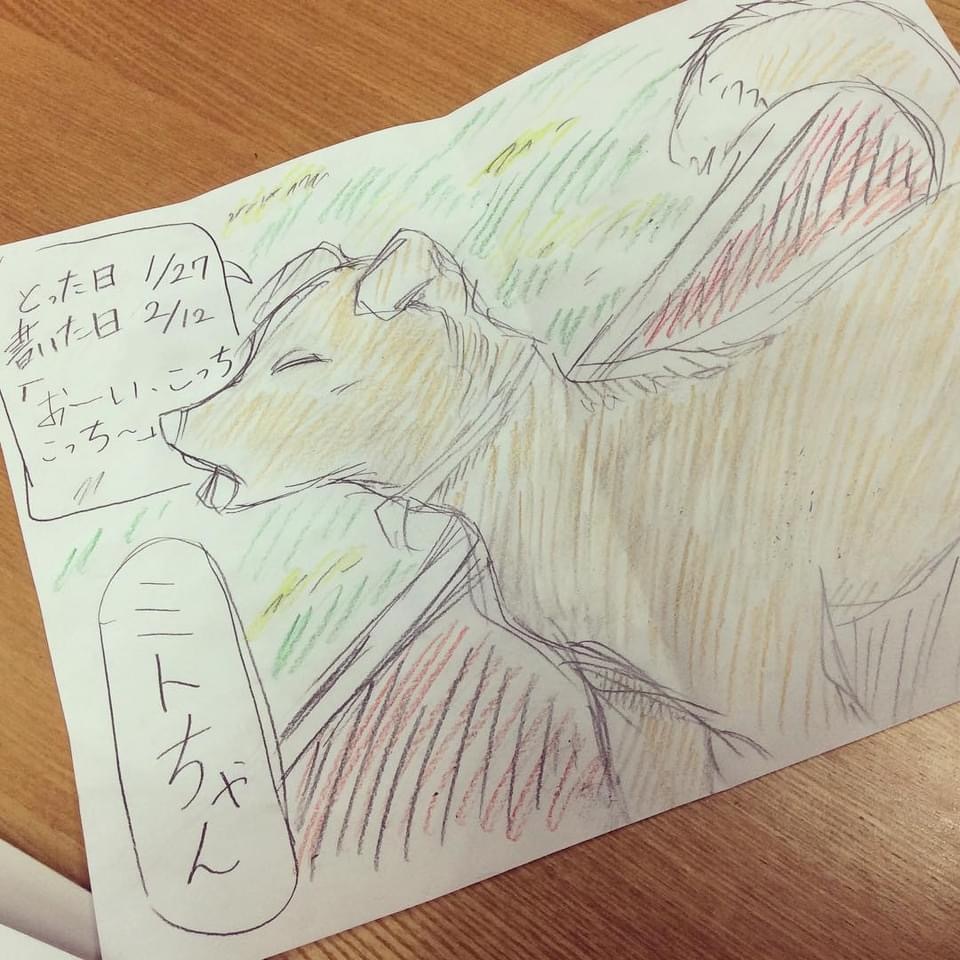 とった日 1/27
書いた日 2/12
「おーい、こっち
こっち〜」
ミトちゃん